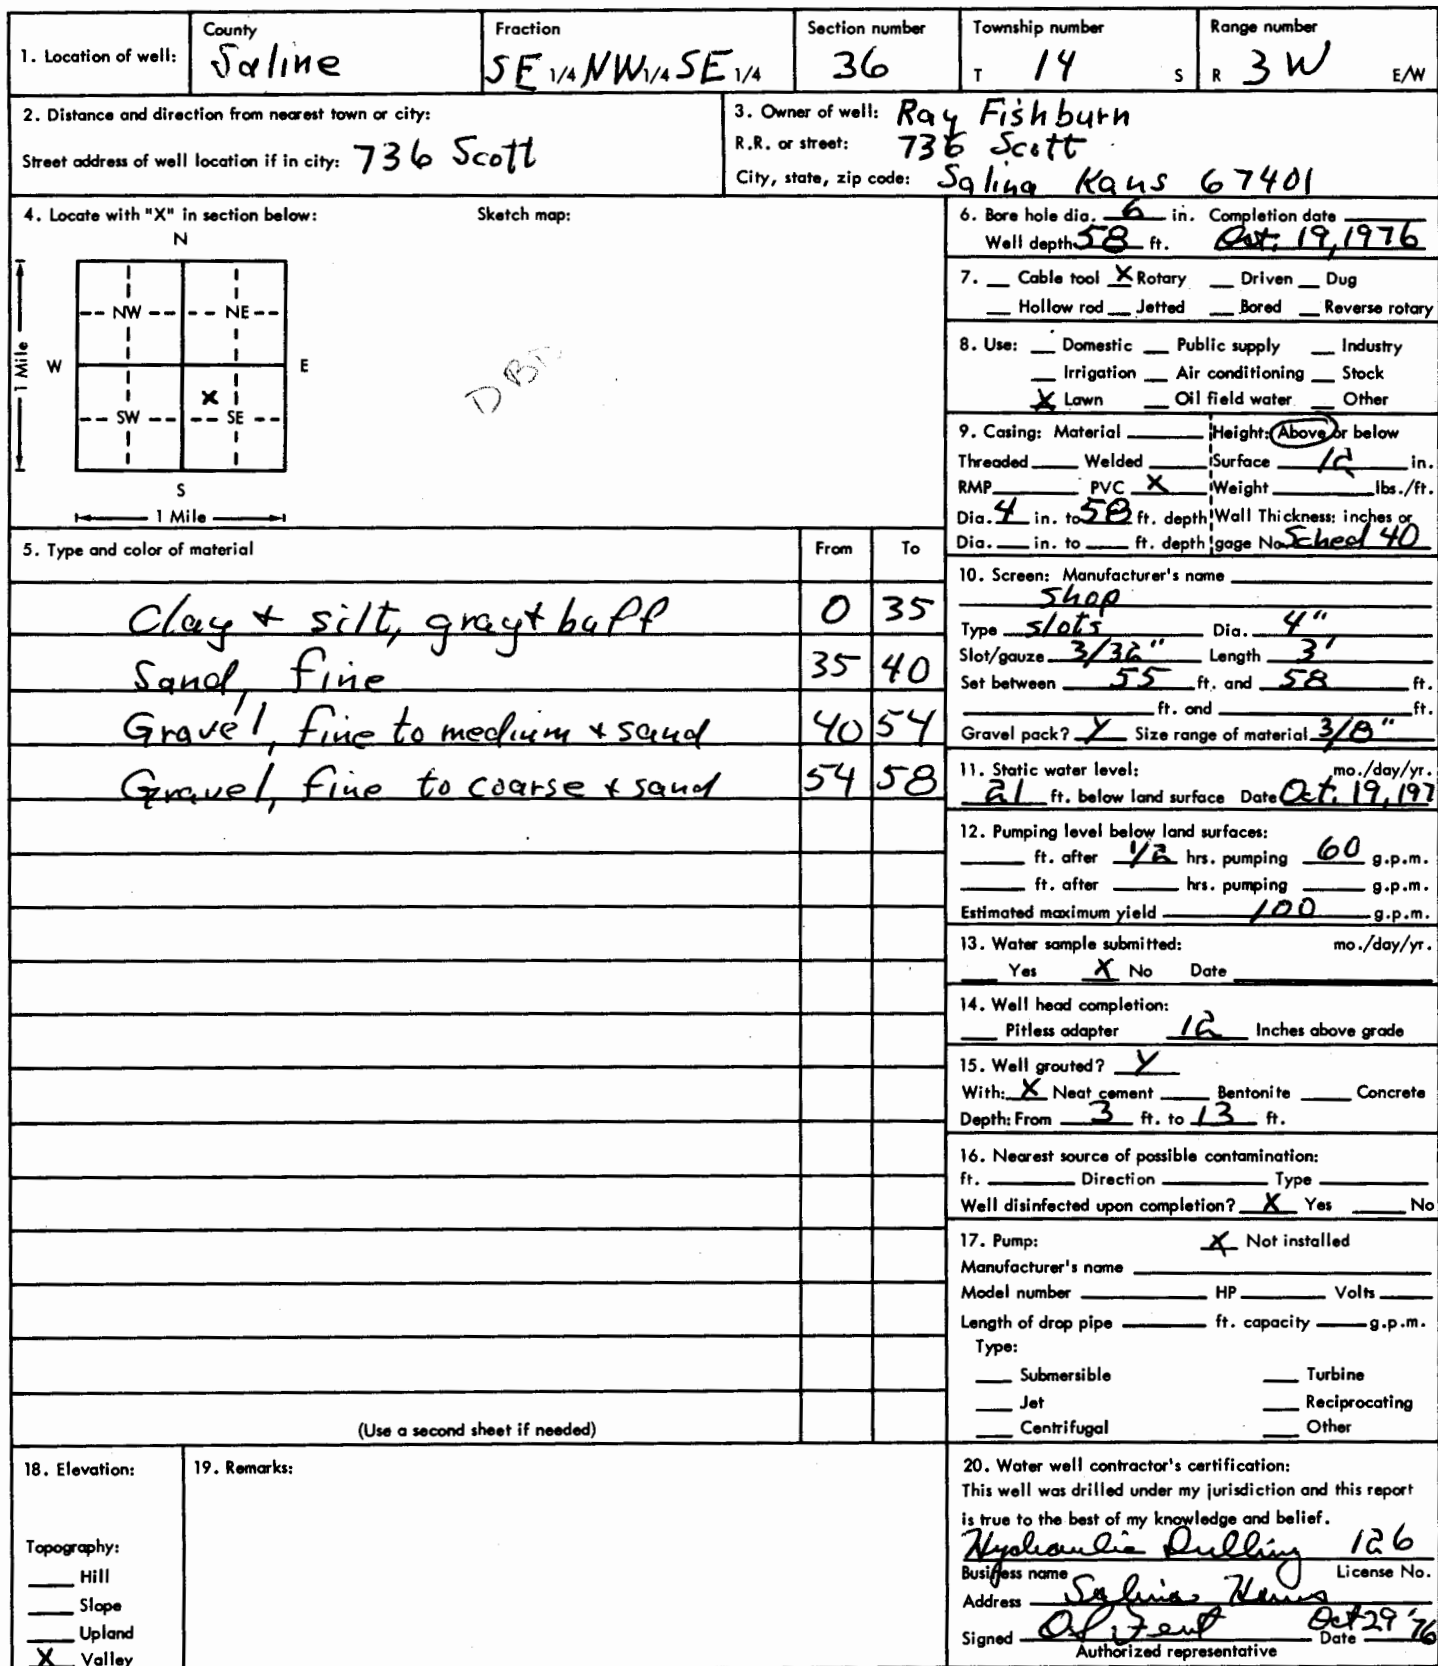 1. Location of well: County Saline Fraction SE 1/4 NW 1/4 SE 1/4 Section number 36 Township number T 14 S Range number R 3 W E/W
2. Distance and direction from nearest town or city:
Street address of well location if in city: 736 Scott
3. Owner of well: Ray Fishburn
R.R. or street: 736 Scott
City, state, zip code: Salina Kans 67401
4. Locate with "X" in section below: Sketch map:
N
NW NE
1 Mile W E
X
SW SE
S
1 Mile
DBD
5. Type and color of material From To
Clay + silt, gray + buff 0 35
Sand, fine 35 40
Gravel, fine to medium + sand 40 54
Gravel, fine to coarse + sand 54 58
(Use a second sheet if needed)
6. Bore hole dia. 6 in. Completion date
Well depth 58 ft. Oct. 19, 1976
7. __ Cable tool X Rotary __ Driven __ Dug
__ Hollow rod __ Jetted __ Bored __ Reverse rotary
8. Use: __ Domestic __ Public supply __ Industry
__ Irrigation __ Air conditioning __ Stock
X Lawn __ Oil field water __ Other
9. Casing: Material ____ Height: Above or below
Threaded ____ Welded ____ Surface 12 in.
RMP ____ PVC X Weight ____ lbs./ft.
Dia. 4 in. to 58 ft. depth Wall Thickness: inches or
Dia. __ in. to __ ft. depth gage No. Sched 40
10. Screen: Manufacturer's name ____
shop
Type slots Dia. 4"
Slot/gauze 3/32" Length 3'
Set between 55 ft. and 58 ft.
____ ft. and ____ ft.
Gravel pack? Y Size range of material 3/8"
11. Static water level: mo./day/yr.
21 ft. below land surface Date Oct. 19, 197
12. Pumping level below land surfaces:
____ ft. after 1/2 hrs. pumping 60 g.p.m.
____ ft. after ____ hrs. pumping ____ g.p.m.
Estimated maximum yield 100 g.p.m.
13. Water sample submitted: mo./day/yr.
__ Yes X No Date ____
14. Well head completion:
__ Pitless adapter 12 Inches above grade
15. Well grouted? Y
With: X Neat cement ____ Bentonite ____ Concrete
Depth: From 3 ft. to 13 ft.
16. Nearest source of possible contamination:
ft. ____ Direction ____ Type ____
Well disinfected upon completion? X Yes ____ No
17. Pump: X Not installed
Manufacturer's name ____
Model number ____ HP ____ Volts ____
Length of drop pipe ____ ft. capacity ____ g.p.m.
Type:
__ Submersible __ Turbine
__ Jet __ Reciprocating
__ Centrifugal __ Other
18. Elevation:
Topography:
__ Hill
__ Slope
__ Upland
X Valley
19. Remarks:
20. Water well contractor's certification:
This well was drilled under my jurisdiction and this report
is true to the best of my knowledge and belief.
Hydraulic Drilling 126
Business name License No.
Address Salina Kans
Signed Date Oct 29 '76
Authorized representative